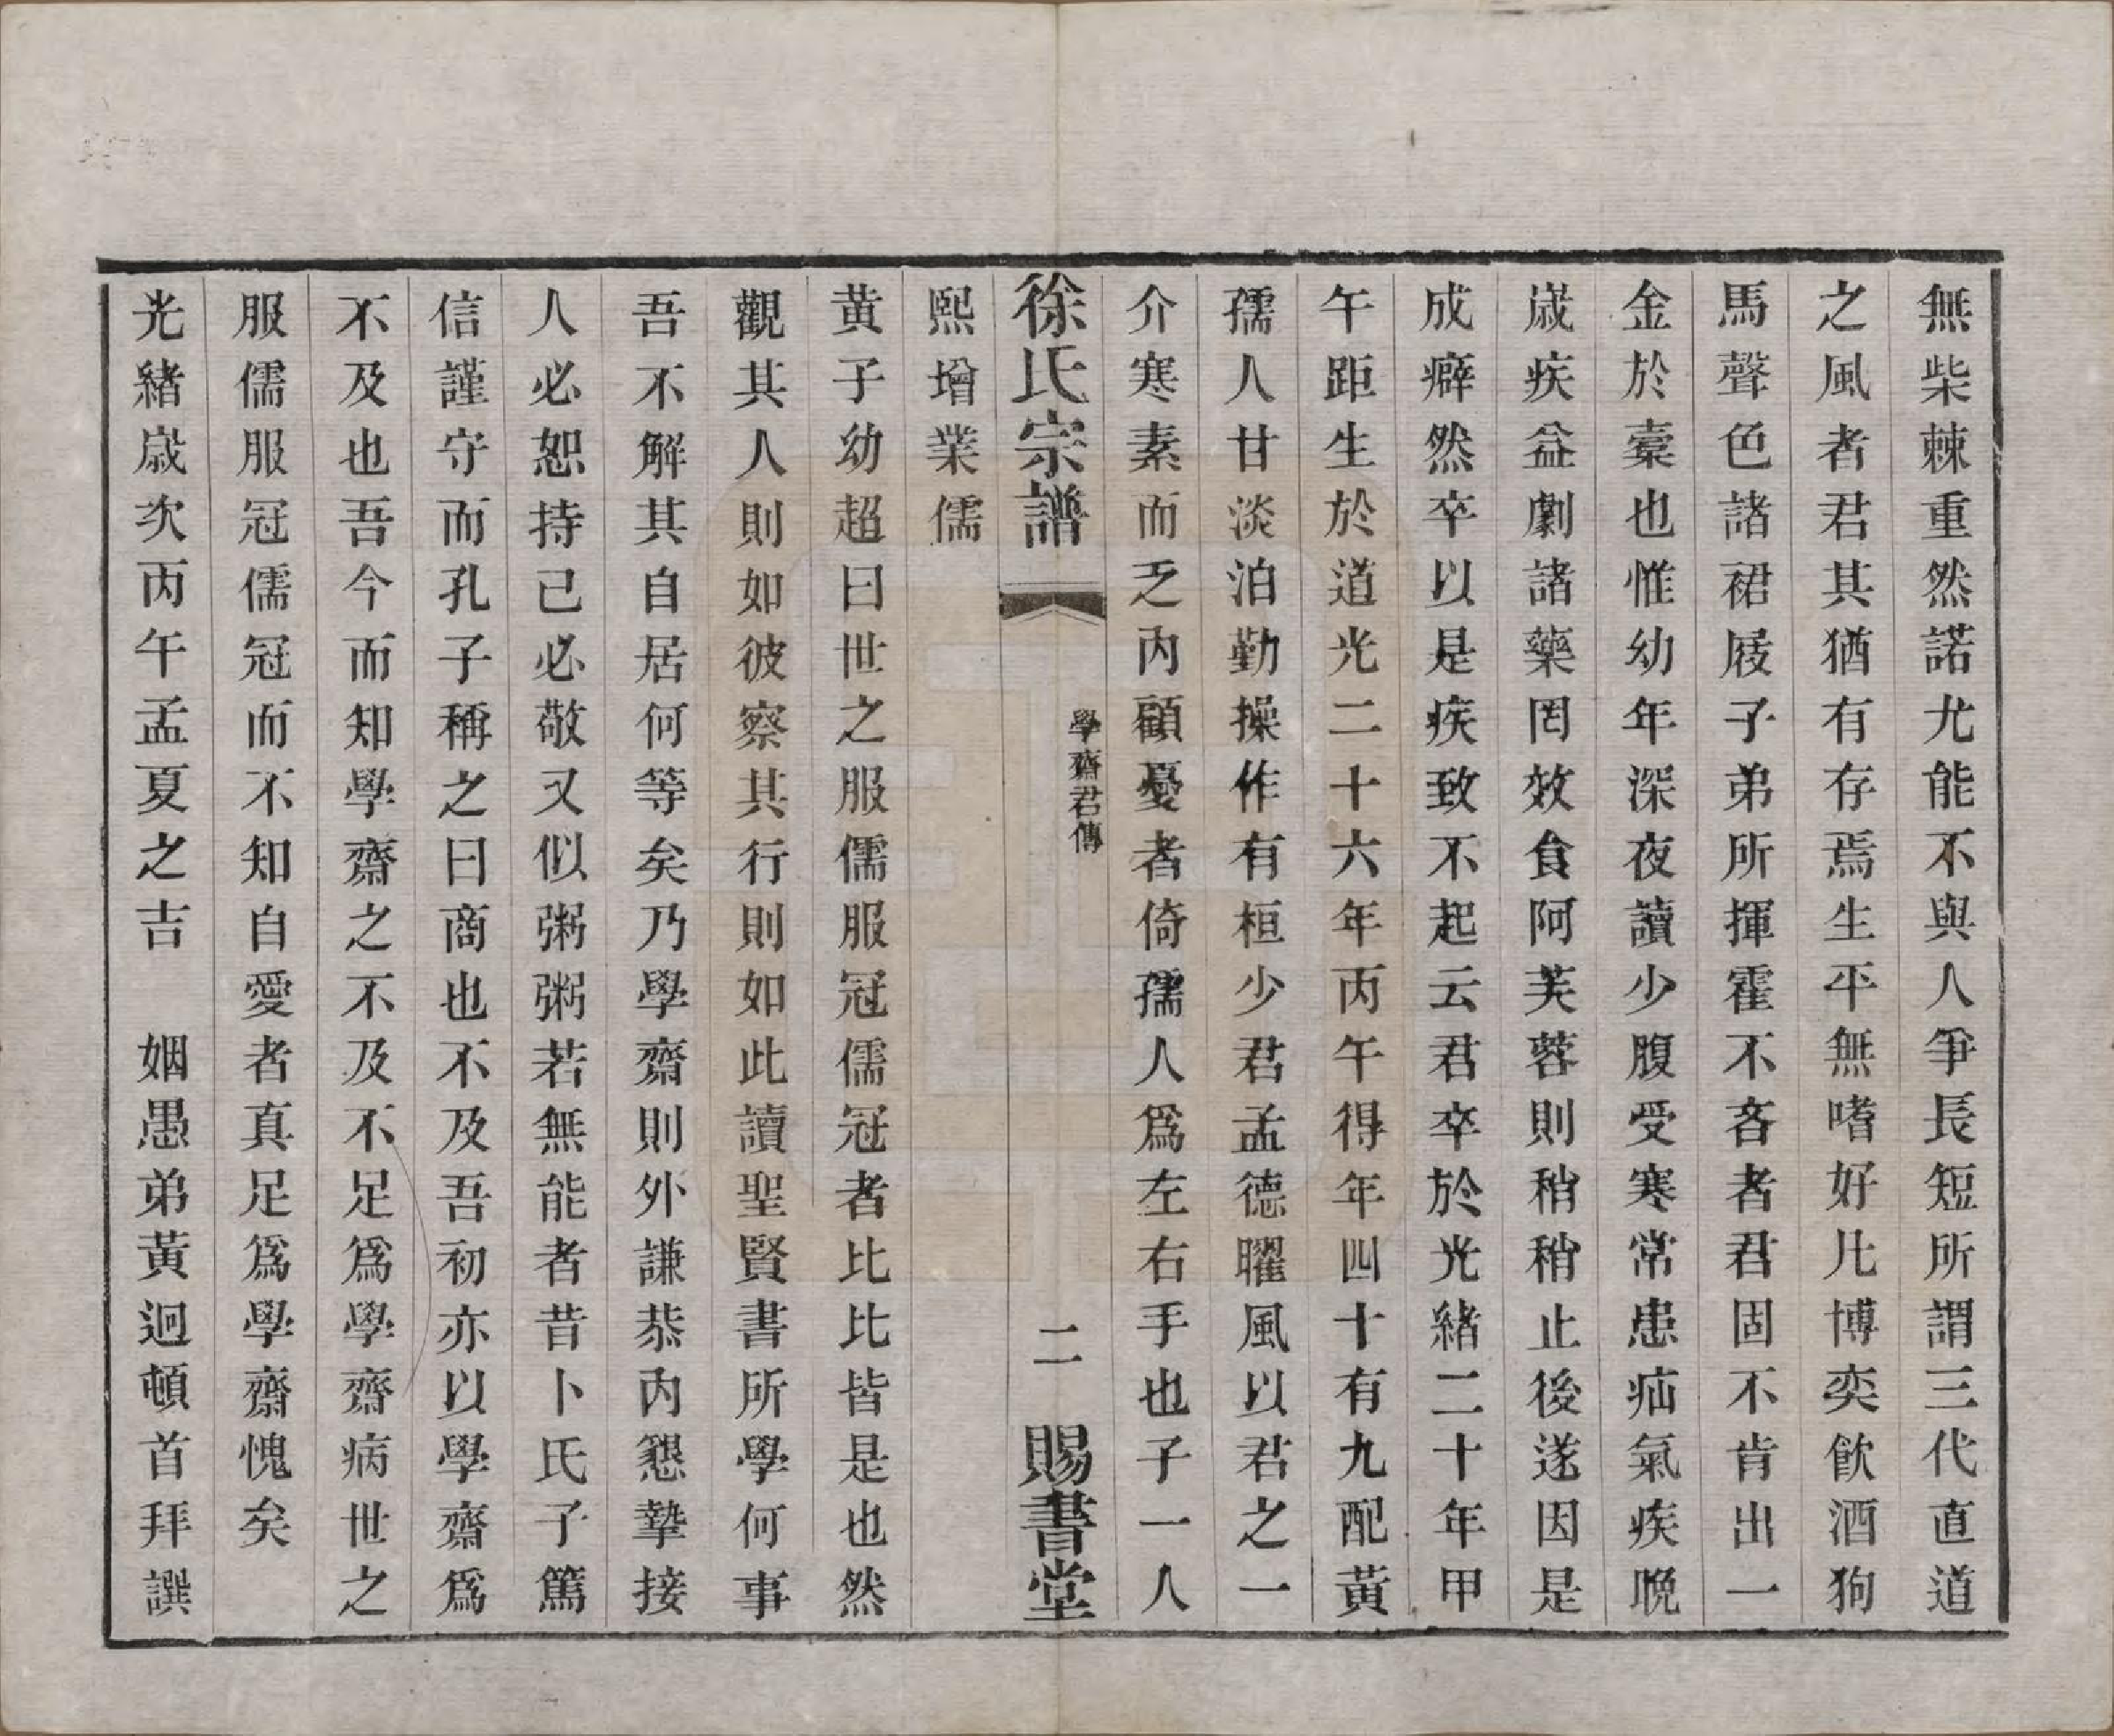 無柴棘重然諾尤能不與人爭長短所謂三代直道
之風者君其猶有存焉生平無嗜好凡博奕飲酒狗
馬聲色諸裙屐子弟所揮霍不吝者君固不肯出一
金於橐也惟幼年深夜讀少腹受寒常患疝氣疾晚
歲疾益劇諸藥罔效食阿芙蓉則稍稍止後遂因是
成癖然卒以是疾致不起云君卒於光緒二十年甲
午距生於道光二十六年丙午得年四十有九配黃
孺人甘淡泊勤操作有桓少君孟德曜風以君之一
介寒素而乏內顧憂者倚孺人爲左右手也子一人
徐氏宗譜
學齋君傳
二
賜書堂
熙增業儒
黃子幼超曰世之服儒服冠儒冠者比比皆是也然
觀其人則如彼察其行則如此讀聖賢書所學何事
吾不解其自居何等矣乃學齋則外謙恭內懇摯接
人必恕持己必敬又似粥粥若無能者昔卜氏子篤
信謹守而孔子稱之曰商也不及吾初亦以學齋爲
不及也吾今而知學齋之不及不足爲學齋病世之
服儒服冠儒冠而不知自愛者真足爲學齋愧矣
光緒歲次丙午孟夏之吉　姻愚弟黃迴頓首拜譔